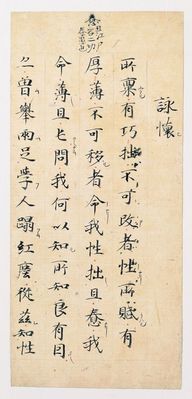 詠懷
所稟有巧拙不可改者性所賦有
厚薄不可移者命我性拙且惷我
命薄且屯問我何以知所知良有因
亦曾擧兩足學人蹋紅塵從茲知性